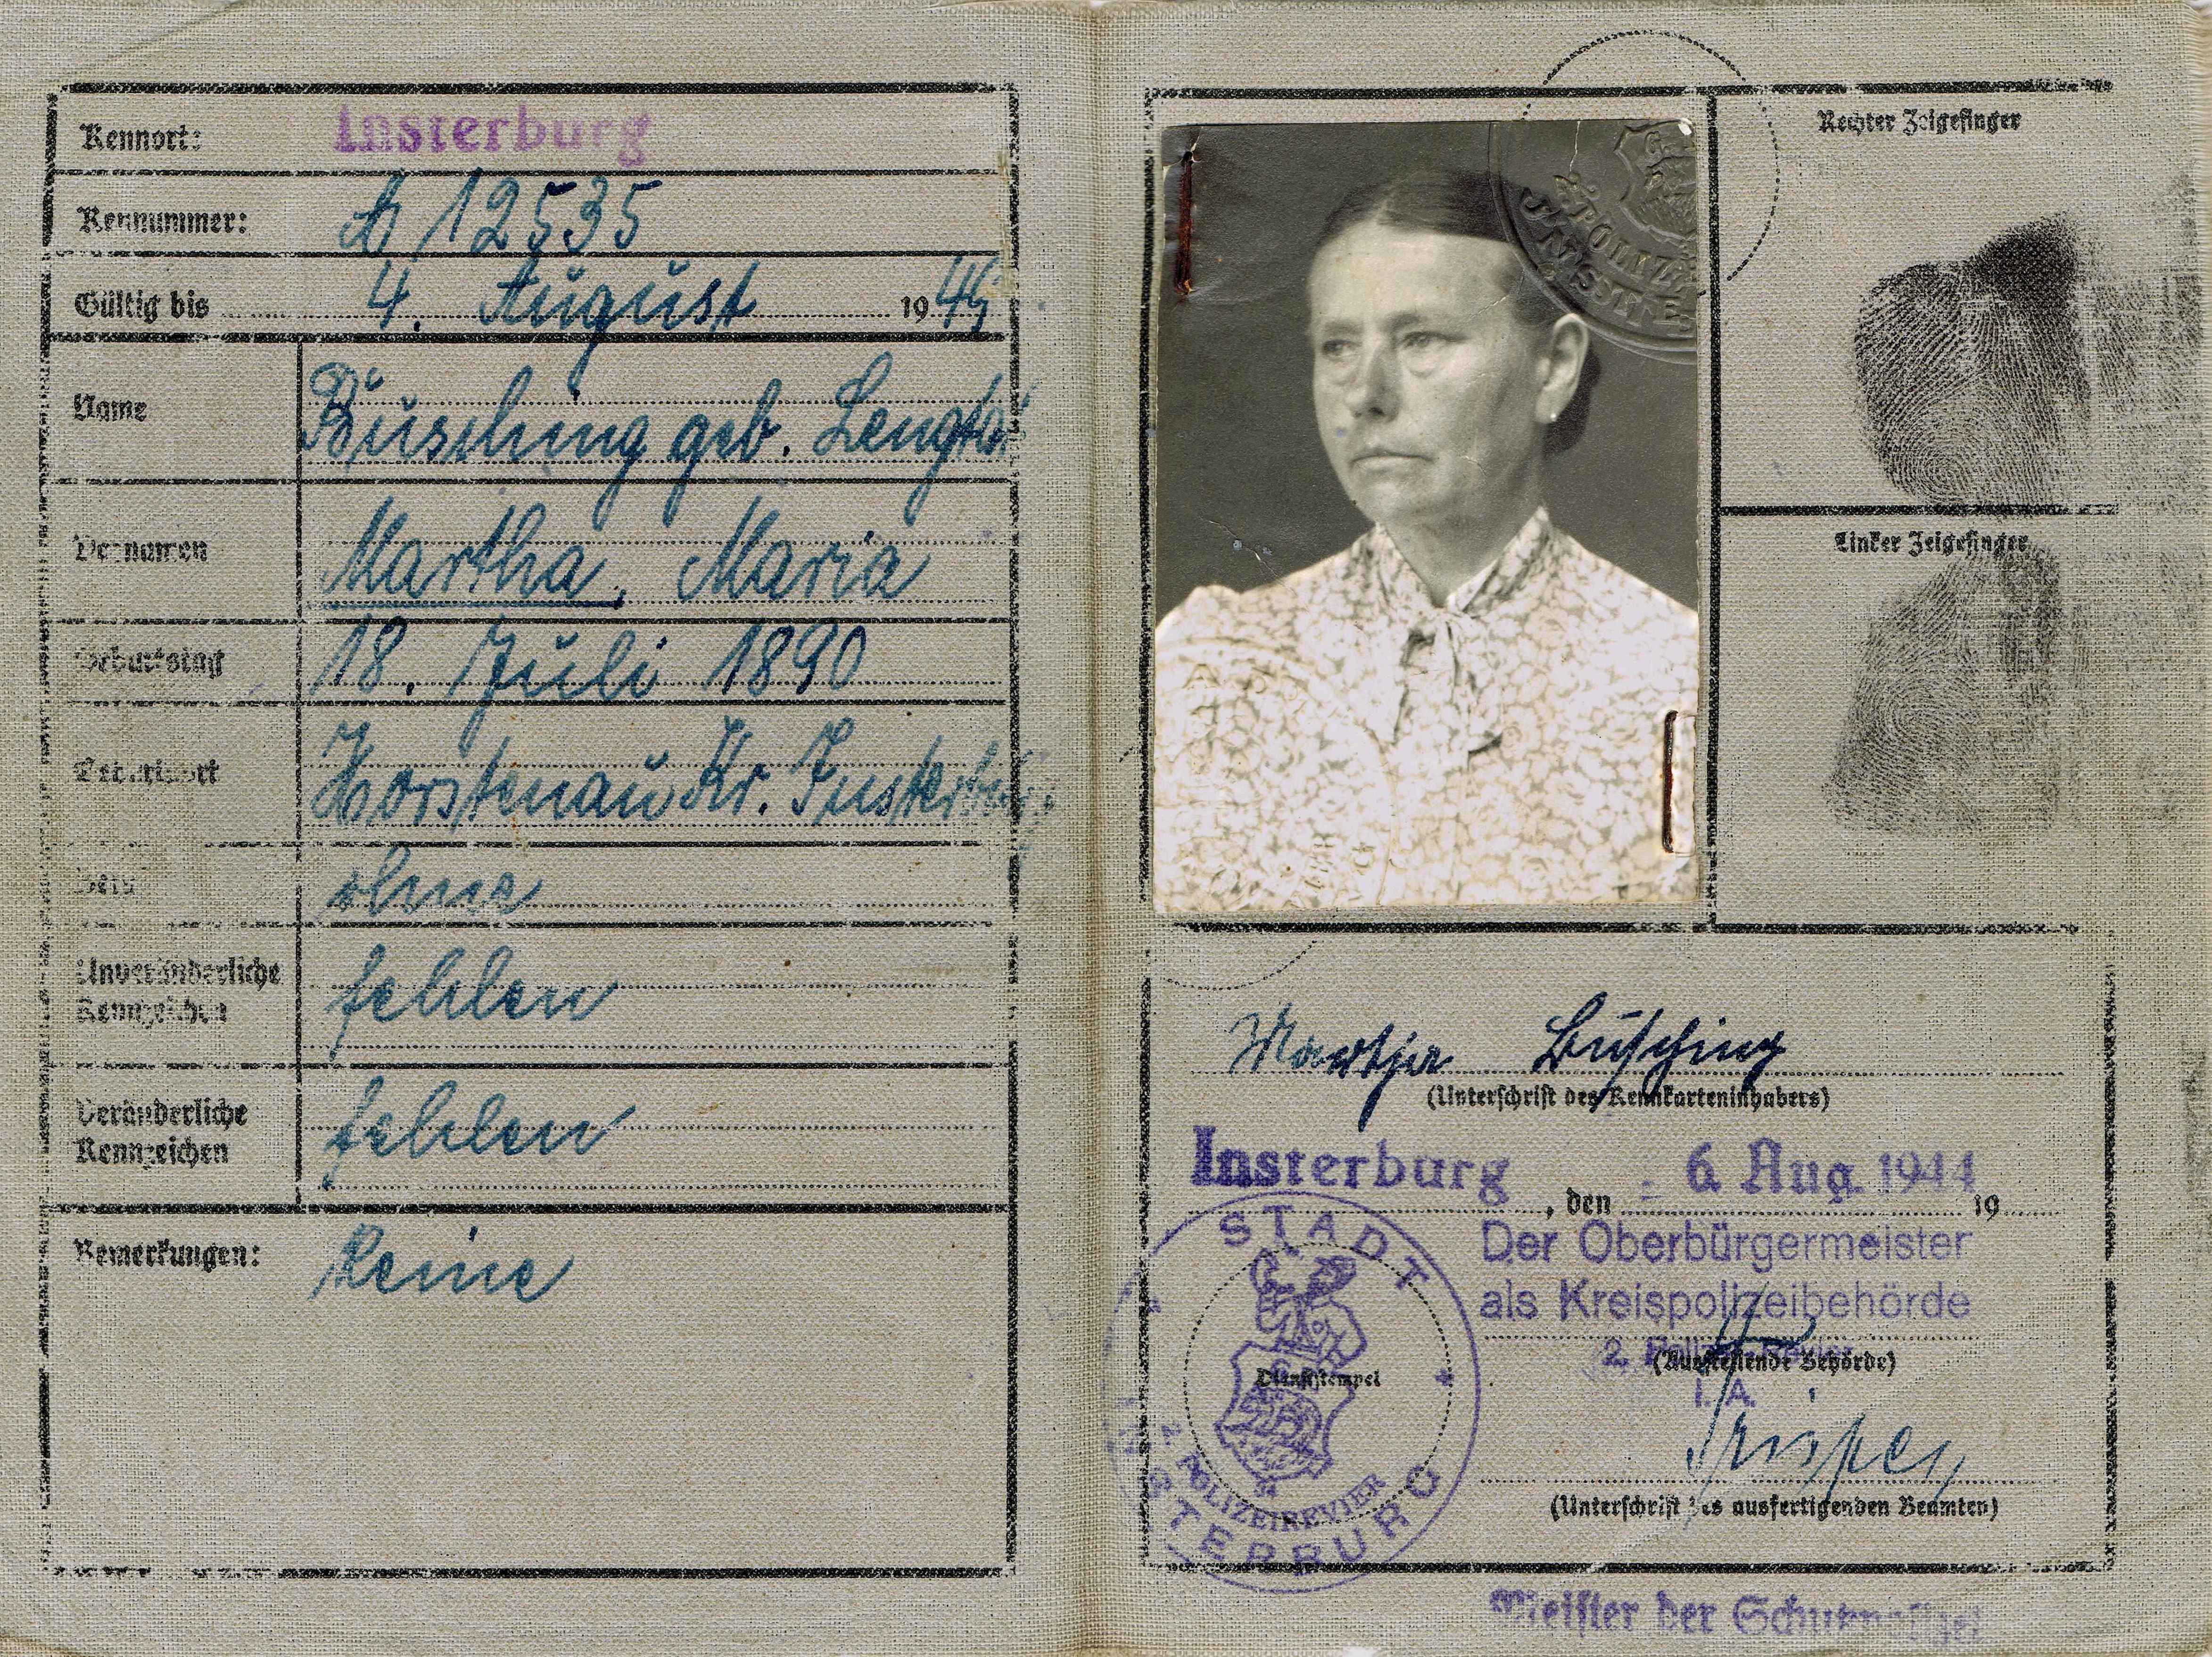 Kennort: Insterburg
Kennummer: A 12535
Gültig bis 4. August 1949
Name Büsching geb.
Vornamen Martha, Maria
Geburtstag 18. Juli 1890
Geburtsort Horstenau Kr. Insterburg
Beruf ohne
Unveränderliche
Kennzeichen fehlen
Veränderliche
Kennzeichen fehlen
Bemerkungen: keine
Rechter Zeigefinger
Linker Zeigefinger
POLIZ
INSTE
Martha Büsching
(Unterschrift des Kennkarteninhabers)
Insterburg, den - 6. Aug. 1944 19
Der Oberbürgermeister
als Kreispolizeibehörde
2. Polizei-Revier
(Ausstellende Behörde)
I. A.
(Unterschrift des ausfertigenden Beamten)
STADT INSTERBURG
2. POLIZEIREVIER
Dienststempel
Meister der Schutzpolizei